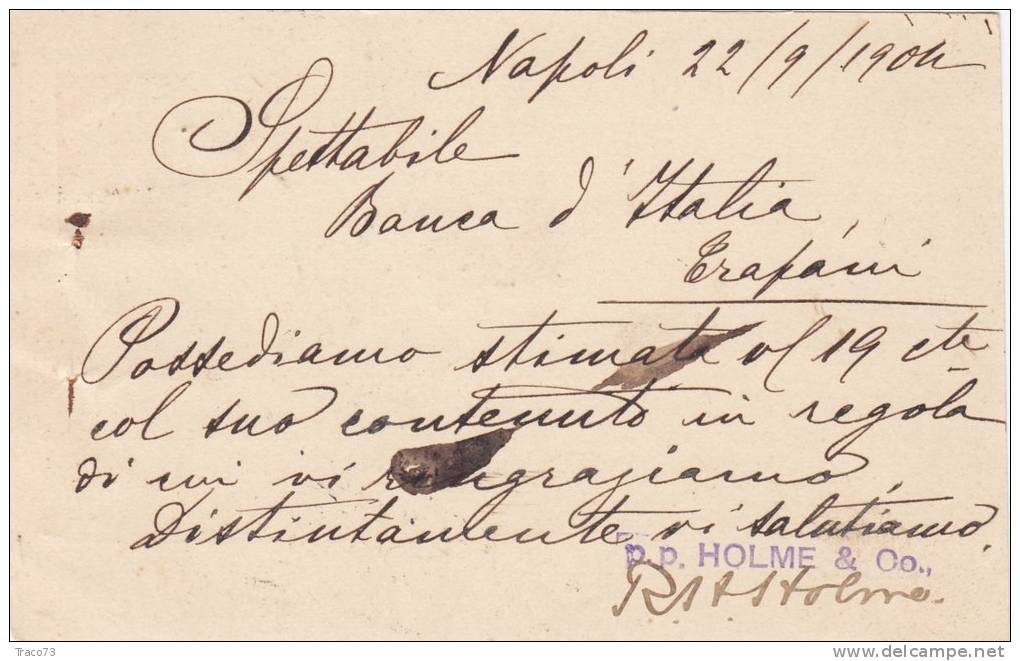 Napoli 22/9/1904
Spettabile
Banca d'Italia
Trapani
Possediamo stimata vs/ 19 cte
col suo contenuto in regola
di cui vi ringraziamo,
Distintamente vi salutiamo.
p.p. HOLME & Co.,
Holme.
Traco73
delcampe.net